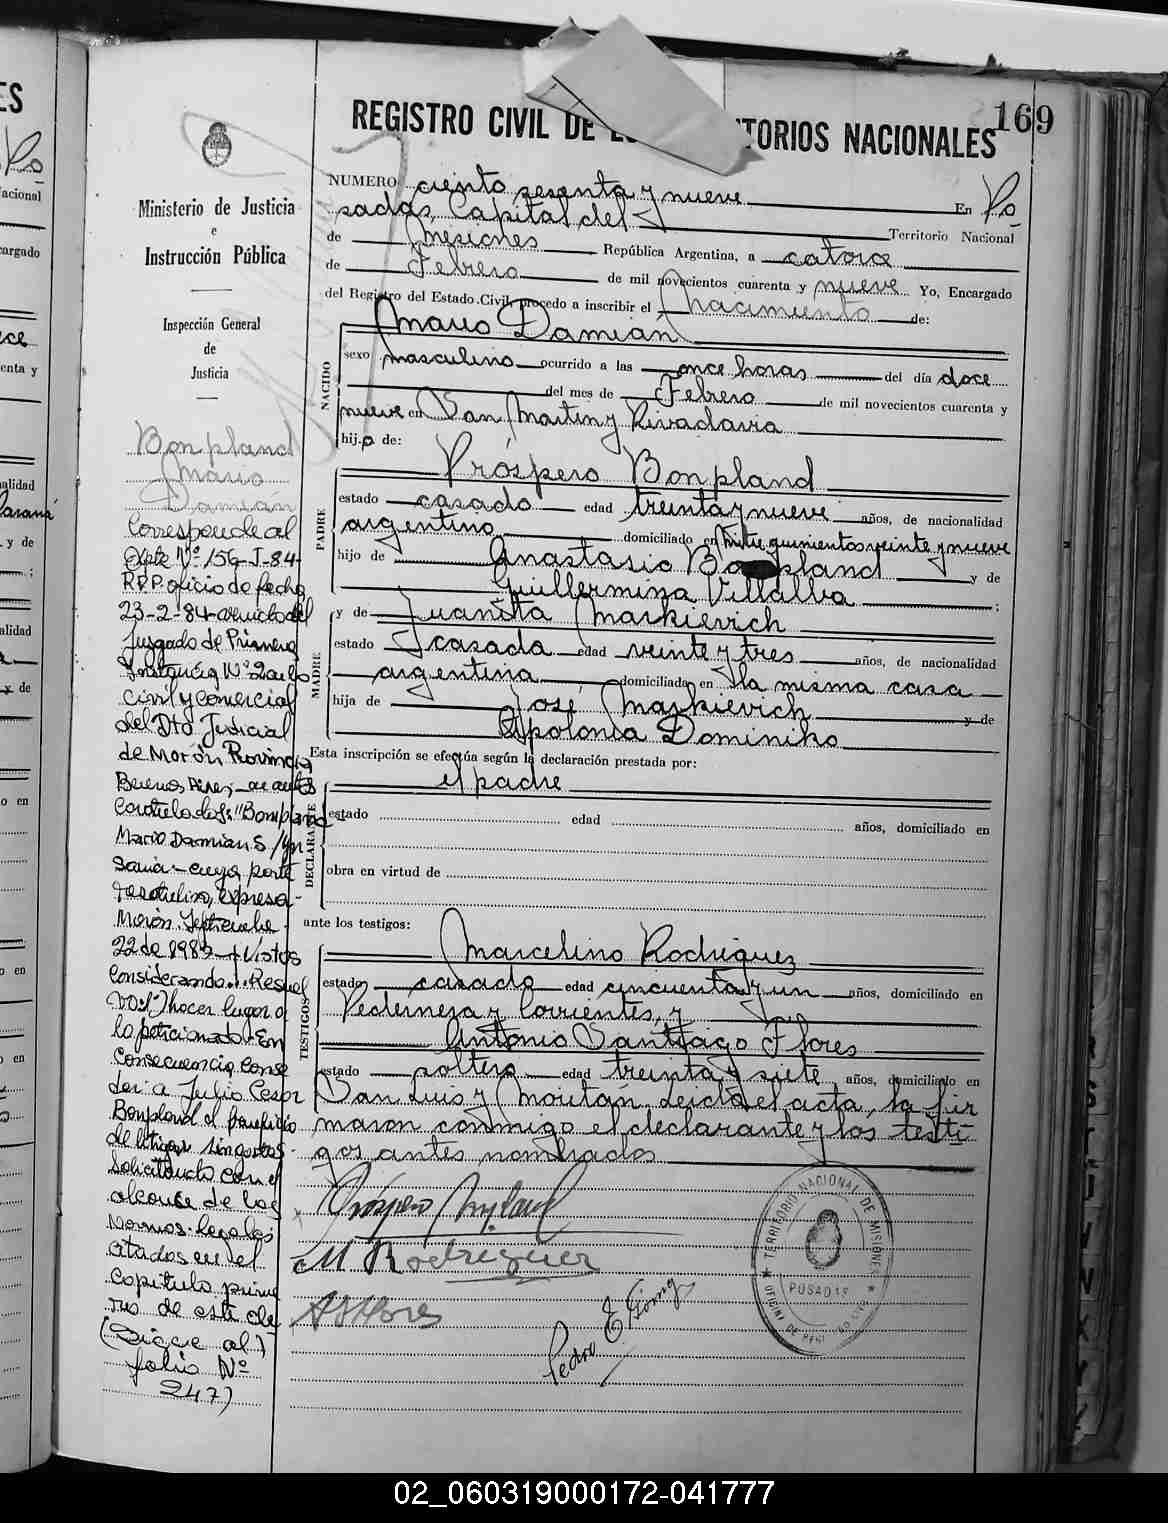 169
REGISTRO CIVIL DE TORIOS NACIONALES
Ministerio de Justicia
e
Instrucción Pública
Inspección General
de
Justicia
NUMERO ciento sesenta y nueve En Po
sadas, Capital del Territorio Nacional
de Misiones República Argentina, a catorce
de Febrero de mil novecientos cuarenta y nueve Yo, Encargado
del Registro del Estado Civil, procedo a inscribir el Nacimiento de:
Mario Damián
NACIDO
sexo masculino ocurrido a las once horas del día doce
del mes de Febrero de mil novecientos cuarenta y
nueve en San Martin y Rivadavia
hijo de:
Próspero Bonpland
PADRE
estado casado edad treinta y nueve años, de nacionalidad
argentino domiciliado en Mitre quinientos veinte y nueve
hijo de Anastasio Bonpland y de
Guillermina Villalba ;
MADRE
y de Juanita Markievich
estado casada edad veinte y tres años, de nacionalidad
argentina domiciliada en la misma casa
hija de José Markievich y de
Apolonia Dominiko
Esta inscripción se efectúa según la declaración prestada por:
el padre
DECLARANTE
estado edad años, domiciliado en
obra en virtud de
ante los testigos:
Marcelino Rodriguez
TESTIGOS
estado casado edad cincuenta y un años, domiciliado en
Pedernera y Corrientes, y
Antonio Santiago Flores
estado soltero edad treinta y siete años, domiciliado en
San Luis y Moritán. Leída el acta, la fir
maron conmigo el declarante y los testi
gos antes nombrados
M Rodriguez
A S Flores
Pedro E Gómez
TERRITORIO NACIONAL DE MISIONES
POSADAS
OFICINA DE REGISTRO CIVIL
Bonpland
Mario
Damián
Corresponde al
Expte Nº 156-I-84
R.P.P. oficio de fecha
23-2-84 del
Juzgado de Primera
Instancia Nº 2 en lo
Civil y Comercial
del Dto Judicial
de Morón Provincia
Buenos Aires en autos
Caratulados: "Bonpland
Mario Damián S/
sania - cuya parte
resolutiva, expresa-
Morón. Septiembre
22 de 1983 - Vistos
Considerando... Resuel
vo: 1º) hacer lugar a
lo peticionado - En
consecuencia conce
der a Julio Cesar
Bonpland el beneficio
de litigar sin gastos
solicitando con el
alcance de las
normas legales
citadas en el
Capitulo prime
ro de este
(Sigue al)
folio Nº
247)
02_060319000172-041777